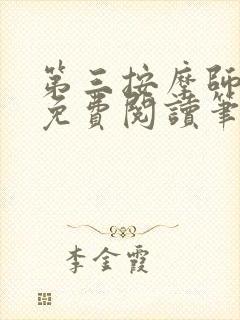 第三按摩師
免費閱讀筆
李金霞